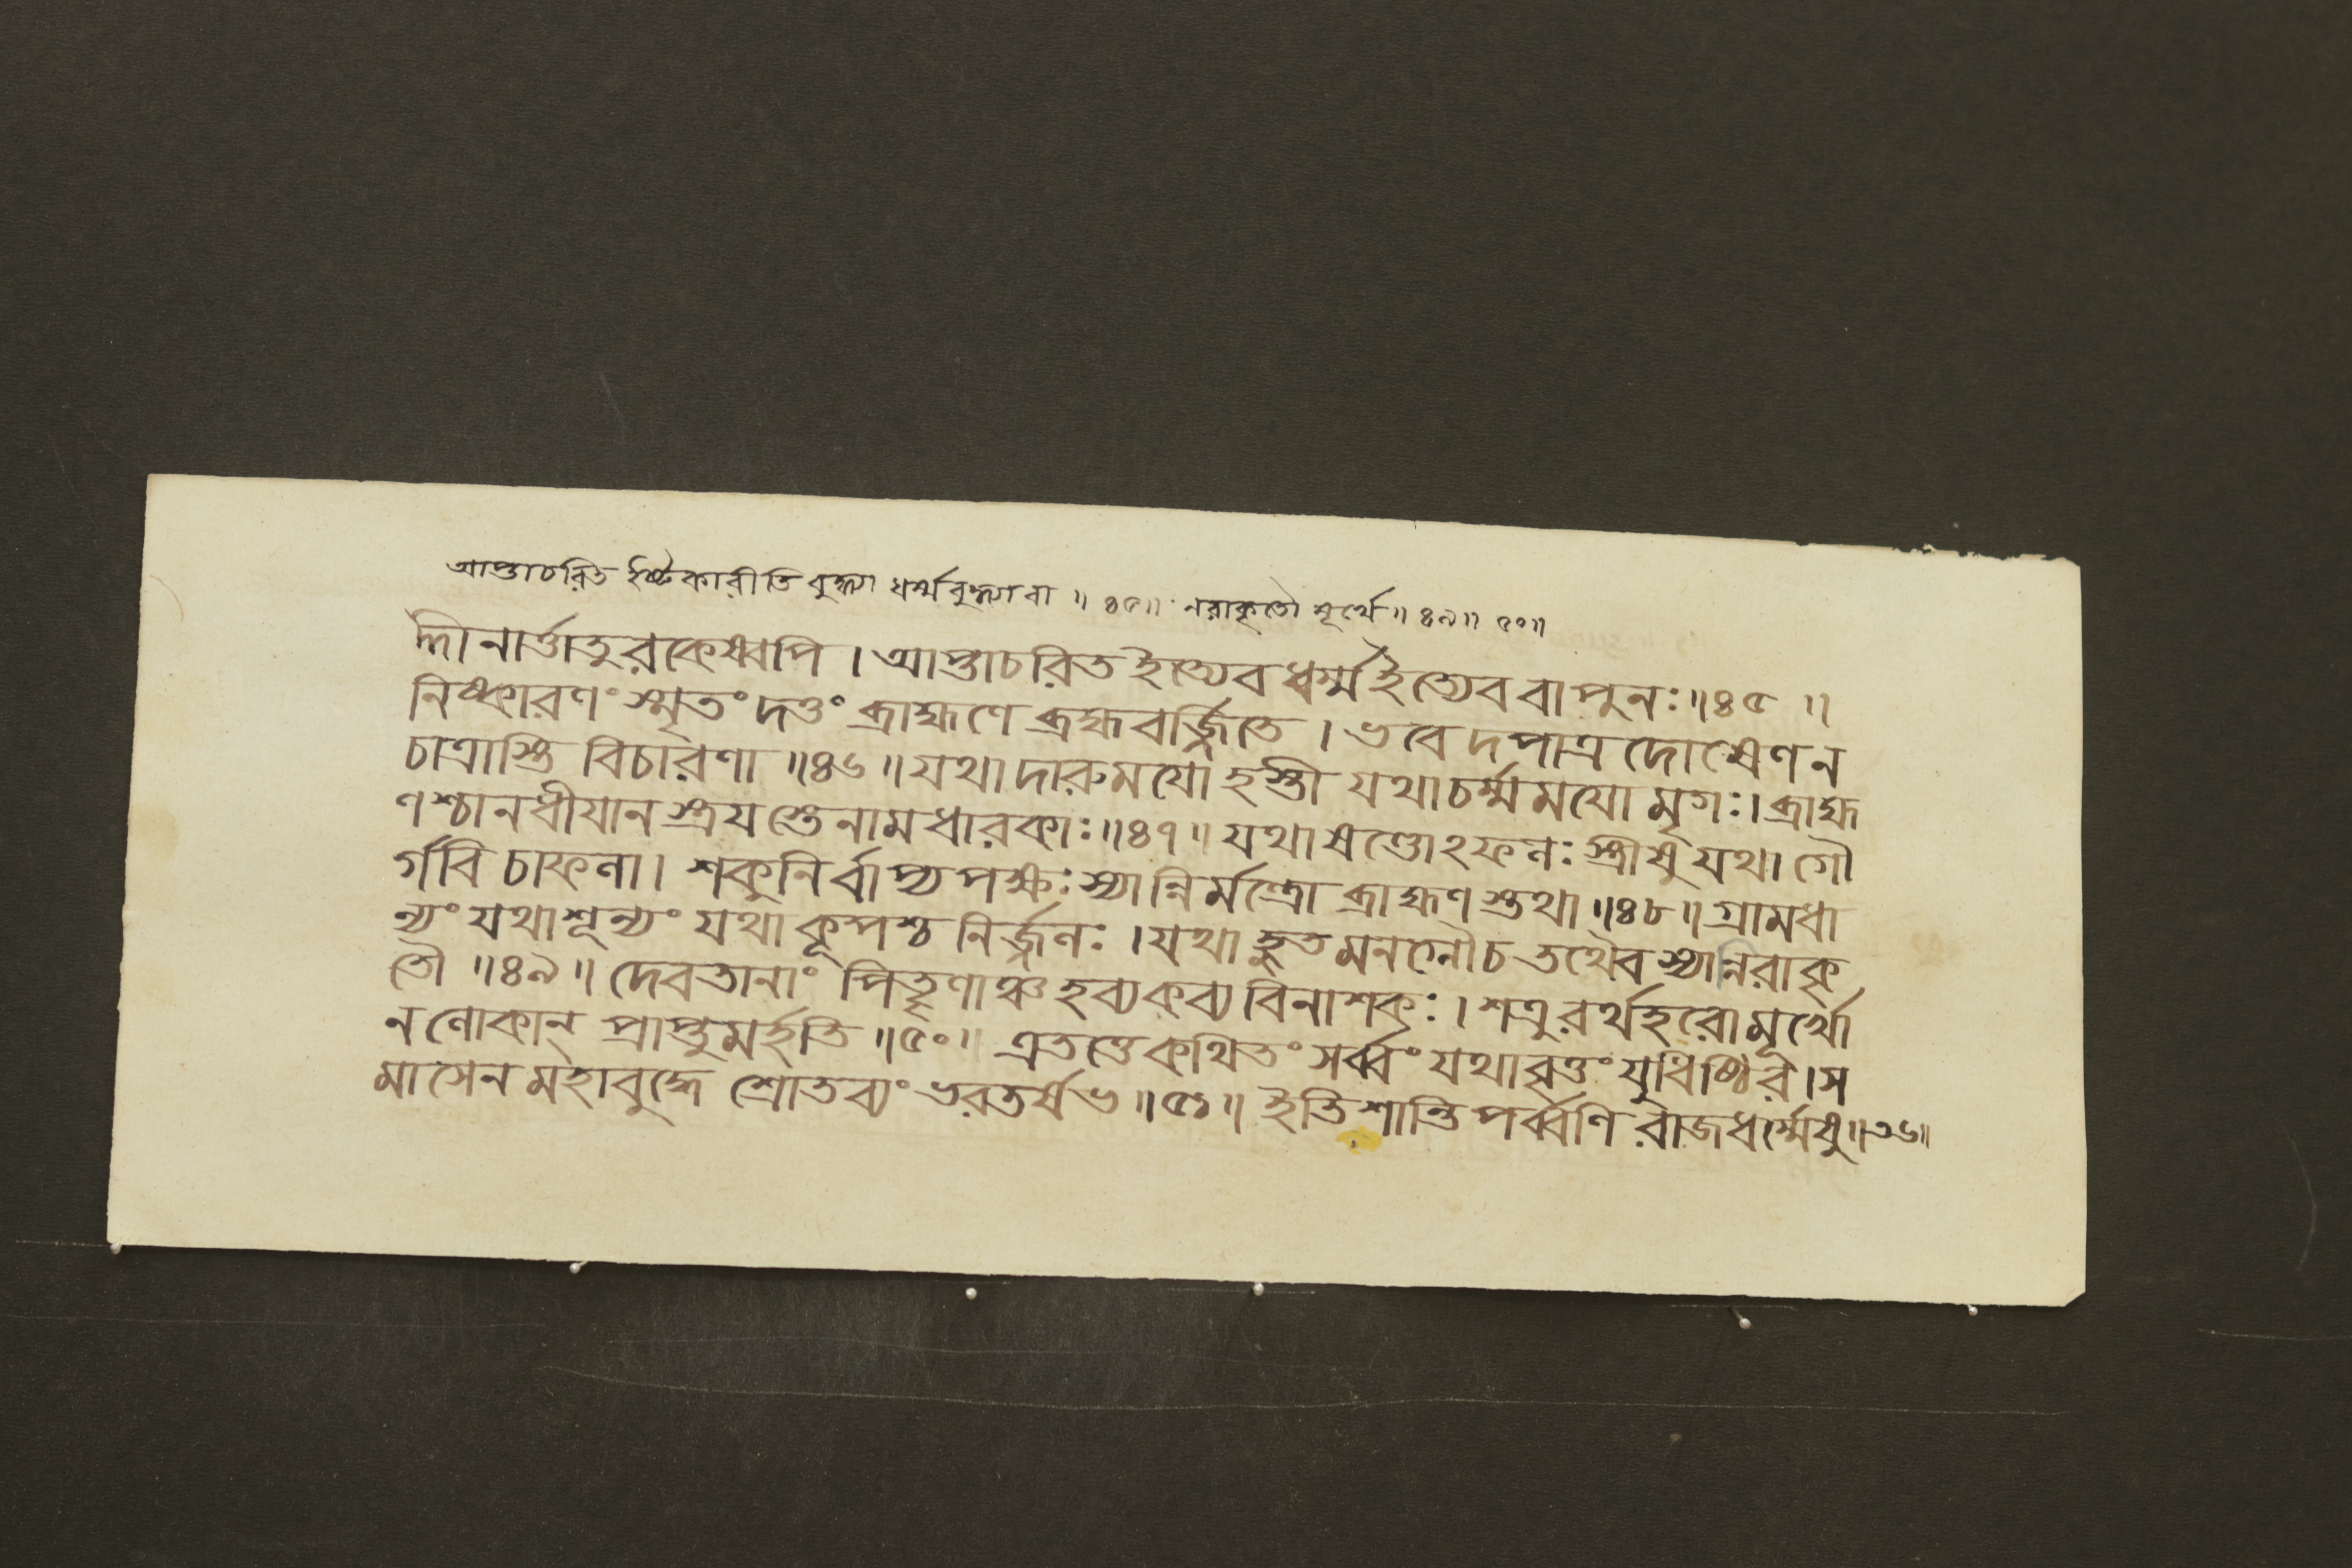 আপ্তাচরিত ইষ্টকারীতি বুদ্ধ্যা ধর্ম্মবুদ্ধ্যা বা ॥ ৪৫॥ নরাকৃতৌ মূর্খে॥ ৪৯॥ ৫০॥
দীনার্ত্তাতুরকেষ্বপি । আপ্তাচরিত ইত্যেব ধর্ম্ম ইত্যেব বা পুনঃ ॥৪৫ ॥
নিষ্কারণং স্মৃতং দত্তং ব্রাহ্মণে ব্রহ্মবর্জ্জিতে । ভবেদপাত্রদোষেণ ন
চাত্রাস্তি বিচারণা ॥৪৬॥ যথা দারুময়ো হস্তী যথা চর্ম্মময়ো মৃগঃ । ব্রাহ্ম
ণশ্চানধীয়ানস্ত্রয়স্তে নামধারকাঃ ॥৪৭॥ যথা ষণ্ডোঽফলঃ স্ত্রীষু যথা গৌ
র্গবি চাফলা । শকুনির্বাপ্যপক্ষঃ স্যান্নির্মন্ত্রো ব্রাহ্মণস্তথা ॥৪৮॥ গ্রামধা
ন্যং যথা শূন্যং যথা কূপশ্চ নির্জ্জলঃ । যথা হুতমনলৌ চ তথৈব স্যান্নিরাকৃ
তৌ ॥৪৯॥ দেবতানাং পিতৄণাঞ্চ হব্যকব্যবিনাশকঃ । শত্রুরর্থহরো মূর্খো
ন লোকান্ প্রাপ্তুমর্হতি ॥৫০॥ এতত্তে কথিতং সর্ব্বং যথাবৃত্তং যুধিষ্ঠির । স
মাসেন মহাবুদ্ধে শ্রোতব্যং ভরতর্ষভ ॥৫১॥ ইতি শান্তিপর্ব্বণি রাজধর্ম্মেষু ॥৩৬॥